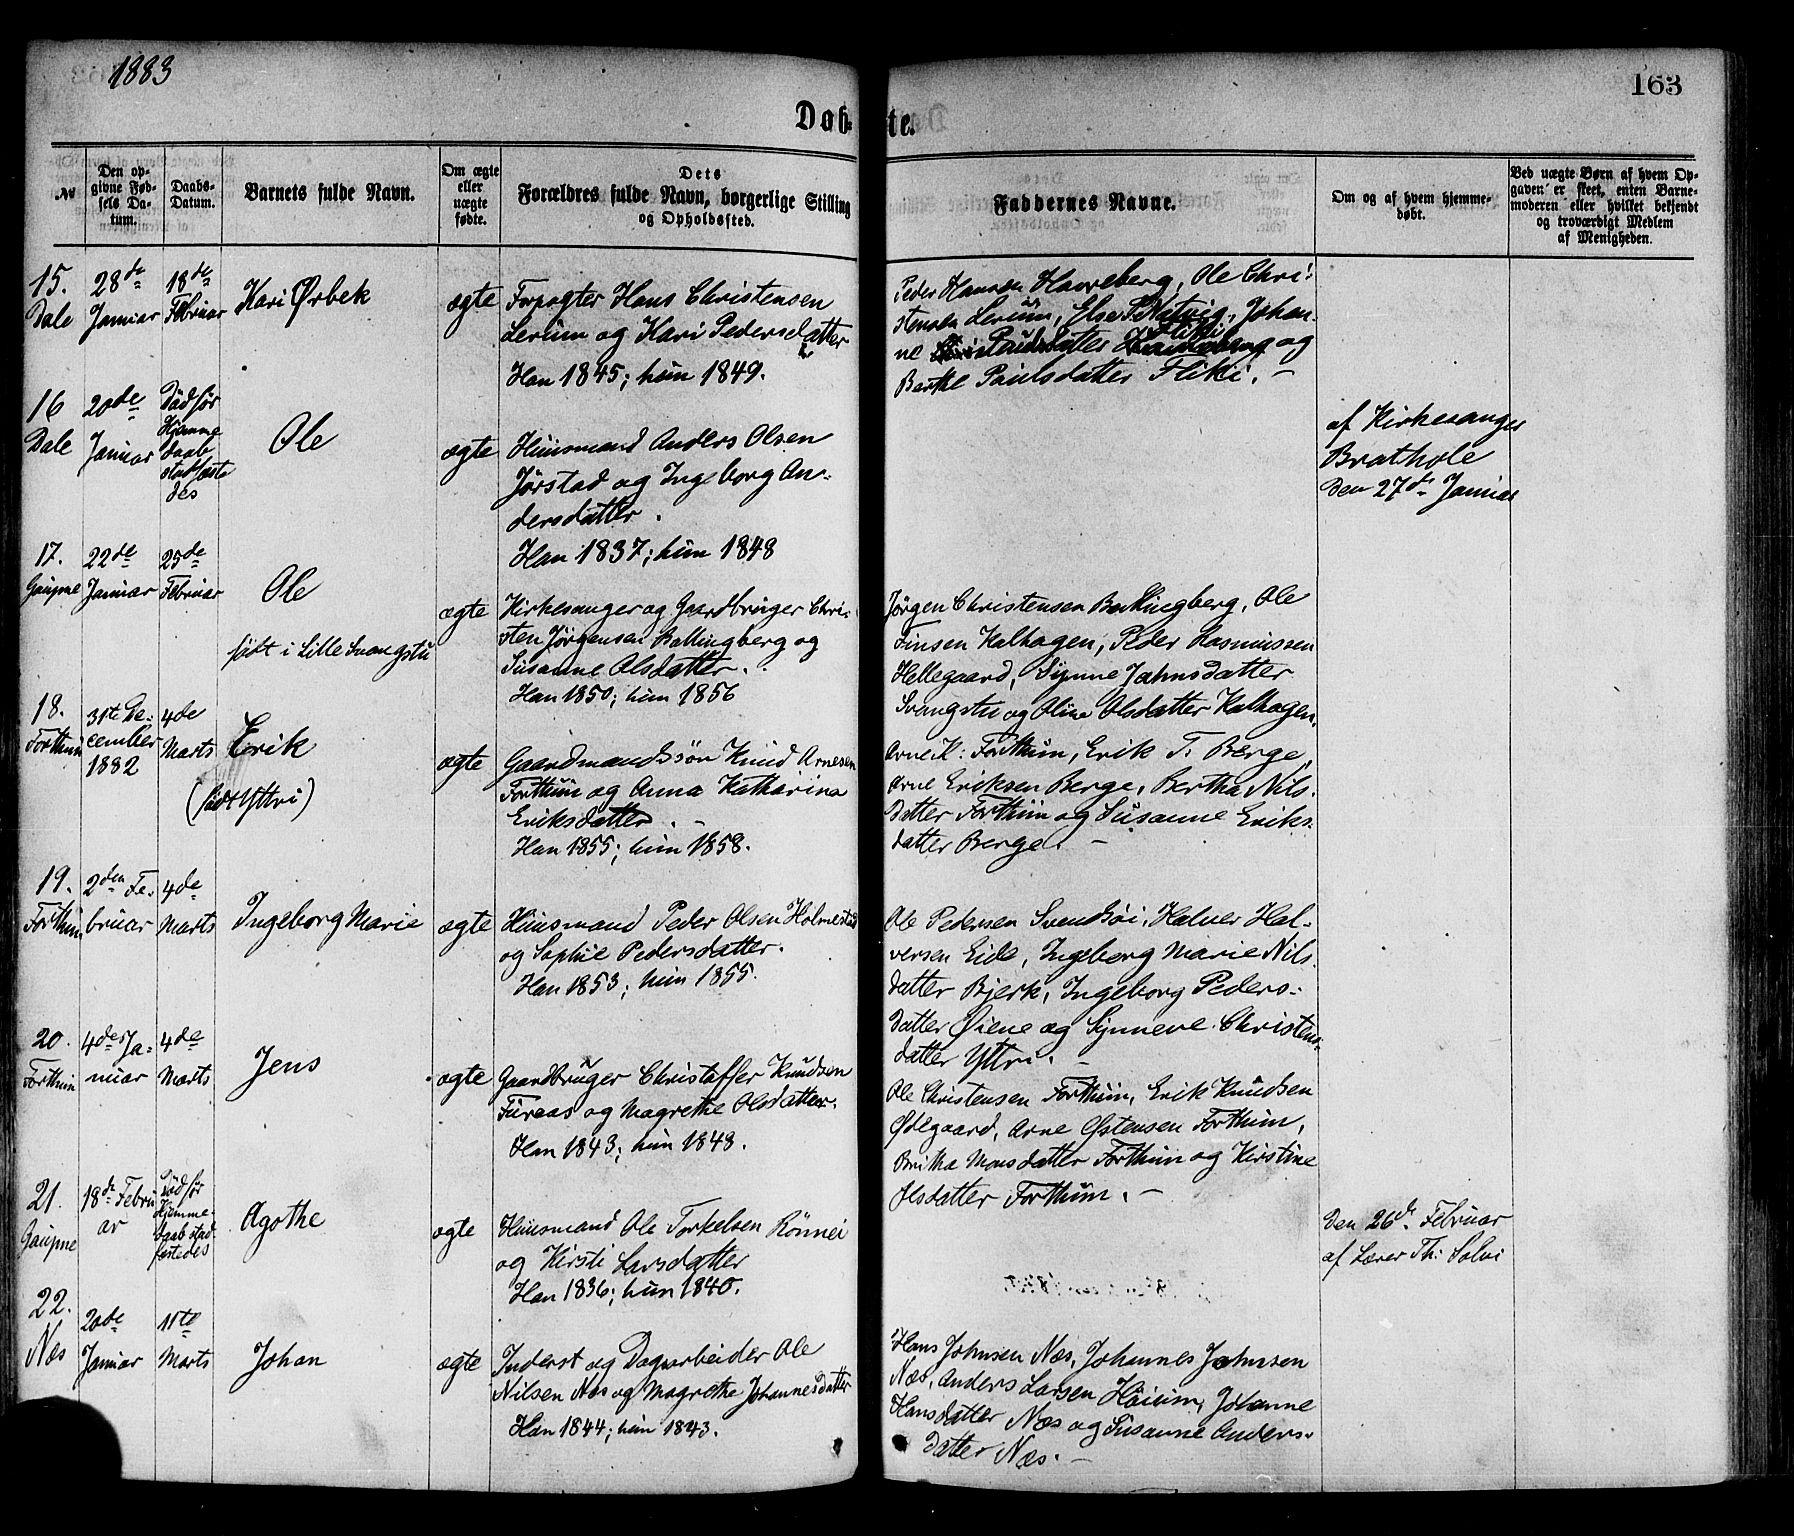 1883
163
Døb-
te.
№
Den op-
givne Fød-
sels Da-
tum.
Daabs-
Datum.
Barnets fulde Navn.
Om ægte
eller
uægte
fødte.
Dets
Forældres fulde Navn, borgerlige Stilling
og Opholdssted.
Faddernes Navne.
Om og af hvem hjemme-
døbt.
Ved uægte Børn af hvem Op-
gaven er skeet, enten Barne-
moderen eller hvilket bekjendt
og troværdigt Medlem
af Menigheden.
15.
Dale
28de
Januar
18de
Februar
Kari Ørbek
ægte
Forpagter Hans Christensen
Lerum og Kari Pedersdatter
Han 1845; hun 1849.
Peder Hansen Havreberg, Ole Chri-
stensen Lerum, Else Natvig, Johan-
ne Paulsdatter Fliki og
Berthe Paulsdatter Fliki. —
16
Dale
20de
Januar
Død før
Hjemme
daab
stadfæste
des
Ole
ægte
Huusmand Anders Olsen
Jørstad og Ingeborg An-
dersdatter.
Han 1837; hun 1848
af Kirkesanger
Brathole
den 27de Januar
17.
Gaupne
22de
Januar
25de
Februar
Ole
født i Lille Svangstu
ægte
Kirkesanger og Gaardbruger Chri-
sten Jørgensen Bakkingberg og
Susanne Olsdatter.
Han 1850; hun 1856
Jørgen Christensen Bakkingberg, Ole
Finsen Kalhagen, Peder Rasmussen
Hellegaard, Synne Jahnsdatter
Svangstu og Oline Olsdatter Kalhagen.
18.
Forthun
31te De-
cember
1882
4de
Marts
Erik
(født Yttri)
ægte
Gaardmandssøn Knud Arnesen
Forthun og Anna Katharina
Eriksdatter. —
Han 1855; hun 1858.
Arne K: Forthun, Erik T. Berge,
Arne Eriksen Berge, Bertha Nils-
datter Forthun og Susanne Eriks-
datter Berge. —
19.
Forthun
2den Fe-
bruar
4de
Marts
Ingeborg Marie
ægte
Huusmand Peder Olsen Holmestad
og Sophie Pedersdatter.
Han 1853; hun 1855.
Ole Pedersen Svendsøi, Halver Hal-
versen Eide, Ingeborg Marie Nils-
datter Bjerk, Ingeborg Peders-
datter Øiene og Synneve Christens-
datter Yttri. —
20.
Forthun
4de Ja-
nuar
4de
Marts
Jens
ægte
Gaardbruger Christoffer Knudsen
Furaas og Magrethe Olsdatter.
Han 1843; hun 1848.
Ole Christensen Forthun, Erik Knudsen
Ødegaard, Arne Østensen Forthun,
Britha Monsdatter Forthun og Kirstine
Olsdatter Forthun. —
21.
Gaupne
18de Febru
ar
Død før
Hjemme-
daab stad-
fæstedes
Agothe
ægte
Huusmand Ole Torkelsen Rønnei
og Kirsti Larsdatter
Han 1836; hun 1840.
Den 26de Februar
af Lærer Th: Solvi
22.
Næs
20de
Januar
11te
Marts
Johan
ægte
Inderst og Dagarbeider Ole
Nilsen Næs og Magrethe Johannesdatter
Han 1844; hun 1843.
Hans Johnsen Næs, Johannes Johnsen
Næs, Anders Larsen Høium, Johanne
Hansdatter Næs og Susanne Anders-
datter Næs. —